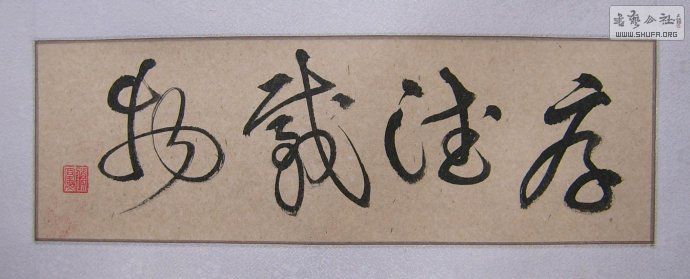 厚德载物
书艺公社
WWW.SHUFA.ORG